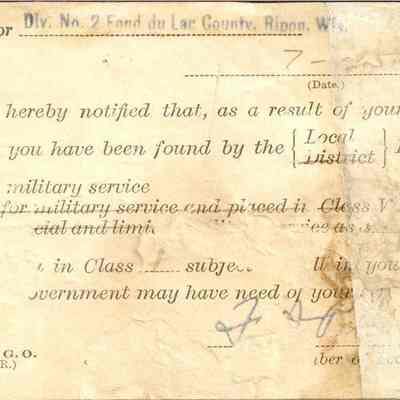 or Div. No. 2 Fond du Lac County, Ripon, Wis.
7-
(Date.)
hereby notified that, as a result of your
you have been found by the { Local
District }
military service
for military service and placed in Class V
cial and limi service as s
in Class subjec ll in you
overnment may have need of your
G. O.
R.) ber of Loc